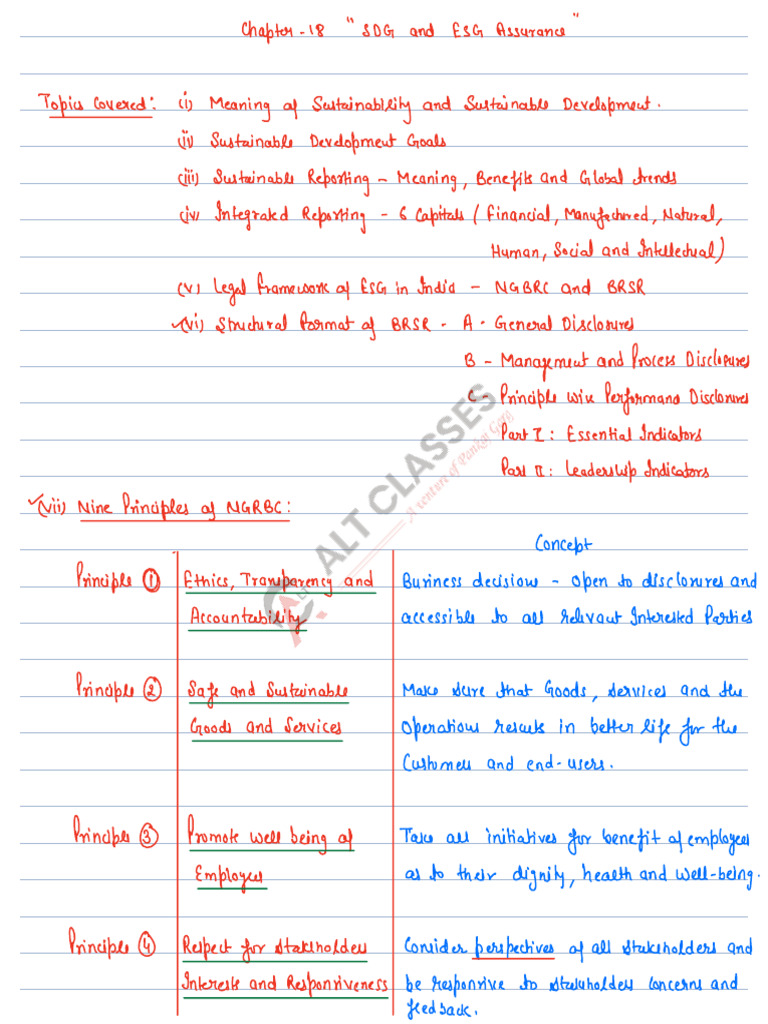 Chapter-18 "SDG and ESG Assurance"
Topics Covered: (i) Meaning of Sustainability and Sustainable Development.
(ii) Sustainable Development Goals
(iii) Sustainable Reporting - Meaning, Benefits and Global trends
(iv) Integrated Reporting - 6 Capitals (Financial, Manufactured, Natural,
Human, Social and Intellectual)
(v) Legal Framework of ESG in India - NGBRC and BRSR
(vi) Structural Format of BRSR - A - General Disclosures
B - Management and Process Disclosures
C - Principle wise Performance Disclosures
Part I : Essential Indicators
Part II : Leadership Indicators
(vii) Nine Principles of NGRBC:
Concept
Principle 1 Ethics, Transparency and Business decisions - open to disclosures and
Accountability accessible to all relevant Interested Parties
Principle 2 Safe and Sustainable Make sure that Goods, services and the
Goods and Services Operations results in better life for the
Customers and end-users.
Principle 3 Promote well being of Take all initiatives for benefit of employees
Employees as to their dignity, health and well-being.
Principle 4 Respect for Stakeholders Consider perspectives of all stakeholders and
Interests and Responsiveness be responsive to stakeholders concerns and
feedback.
ALT CLASSES
A venture of Pankaj Garg